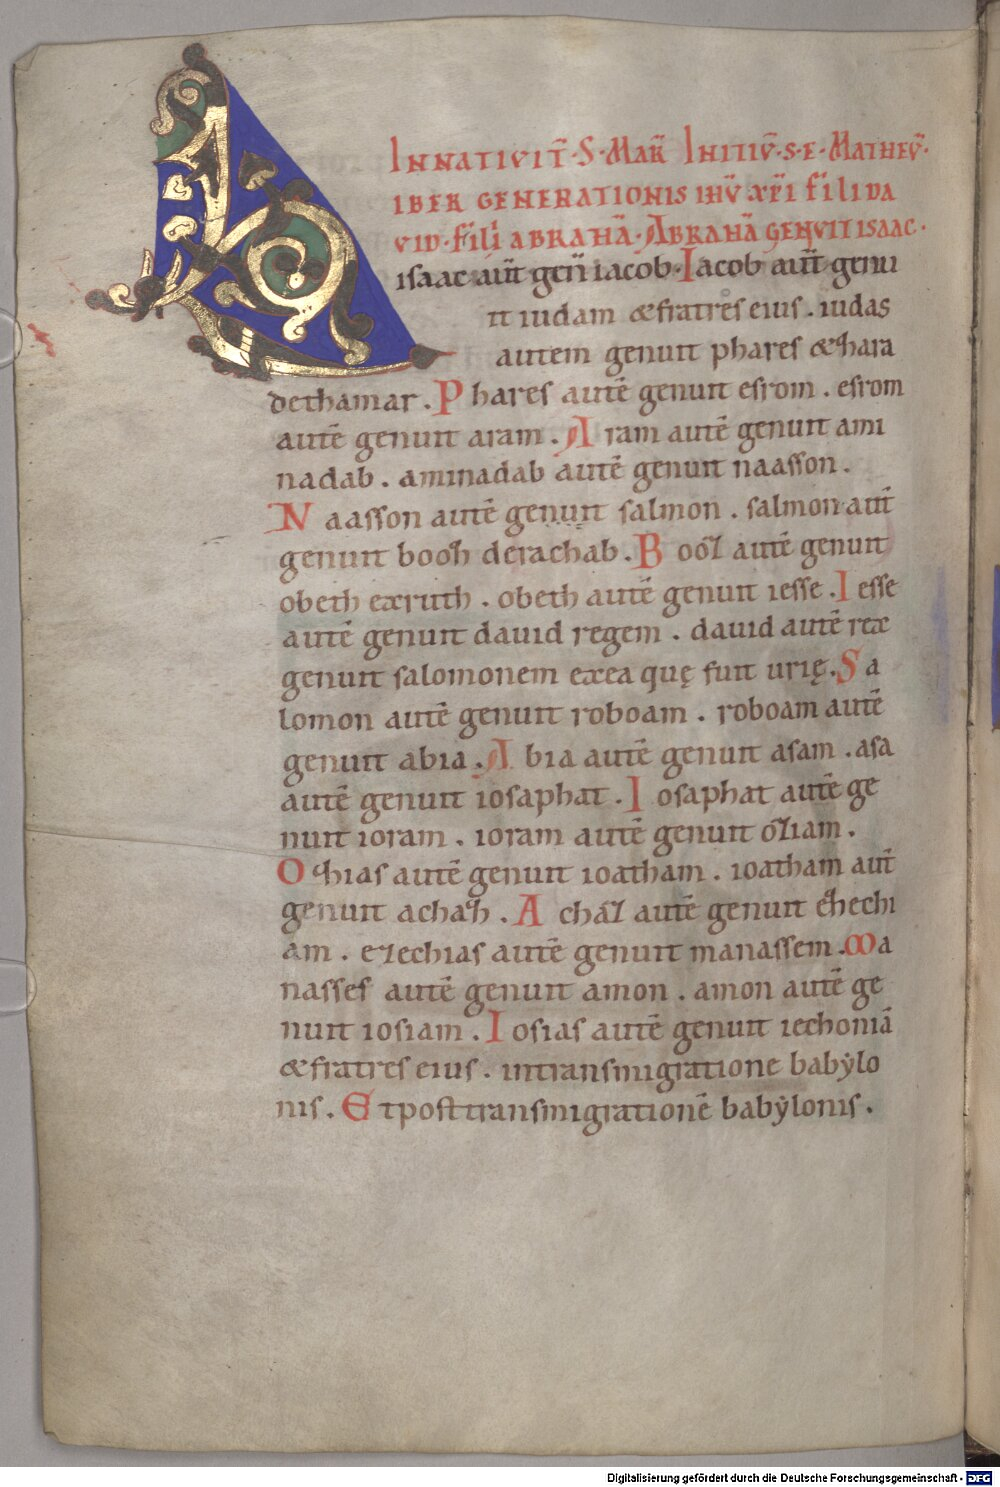 IN NATIVIT̄·S·MAR̄ INITIV̄·S·E·MATHEV̄·
L IBER GENERATIONIS IHV̄ XP̄I FILI DA
VID·FILI ABRAHĀ·ABRAHĀ GENVIT ISAAC·
isaac aut̄ geñ iacob·Iacob aut̄ genu
it iudam &fratres eius. iudas
autem genuit phares &zhara
dethamar. Phares autē genuit esrom. esrom
autē genuit aram. Aram autē genuit ami
nadab. aminadab autē genuit naasson.
Naasson autē genuit salmon. salmon aut̄
genuit booz derachab. Booz autē genuit
obeth exruth. obeth autē genuit iesse. Iesse
autē genuit dauid regem. dauid autē rex
genuit salomonem exea quę fuit urię. Sa
lomon autē genuit roboam. roboam autē
genuit abia. Abia autē genuit asam. asa
autē genuit iosaphat. Iosaphat autē ge
nuit ioram. ioram autē genuit oziam.
Ozias autē genuit ioatham. ioatham aut̄
genuit achaz. Achaz autē genuit ezechi
am. ezechias autē genuit manassem. Ma
nasses autē genuit amon. amon autē ge
nuit iosiam. Iosias autē genuit iechoniā
&fratres eius. intransmigratione babẏlo
nis. Et post transmigrationē babẏlonis.
Digitalisierung gefördert durch die Deutsche Forschungsgemeinschaft - DFG